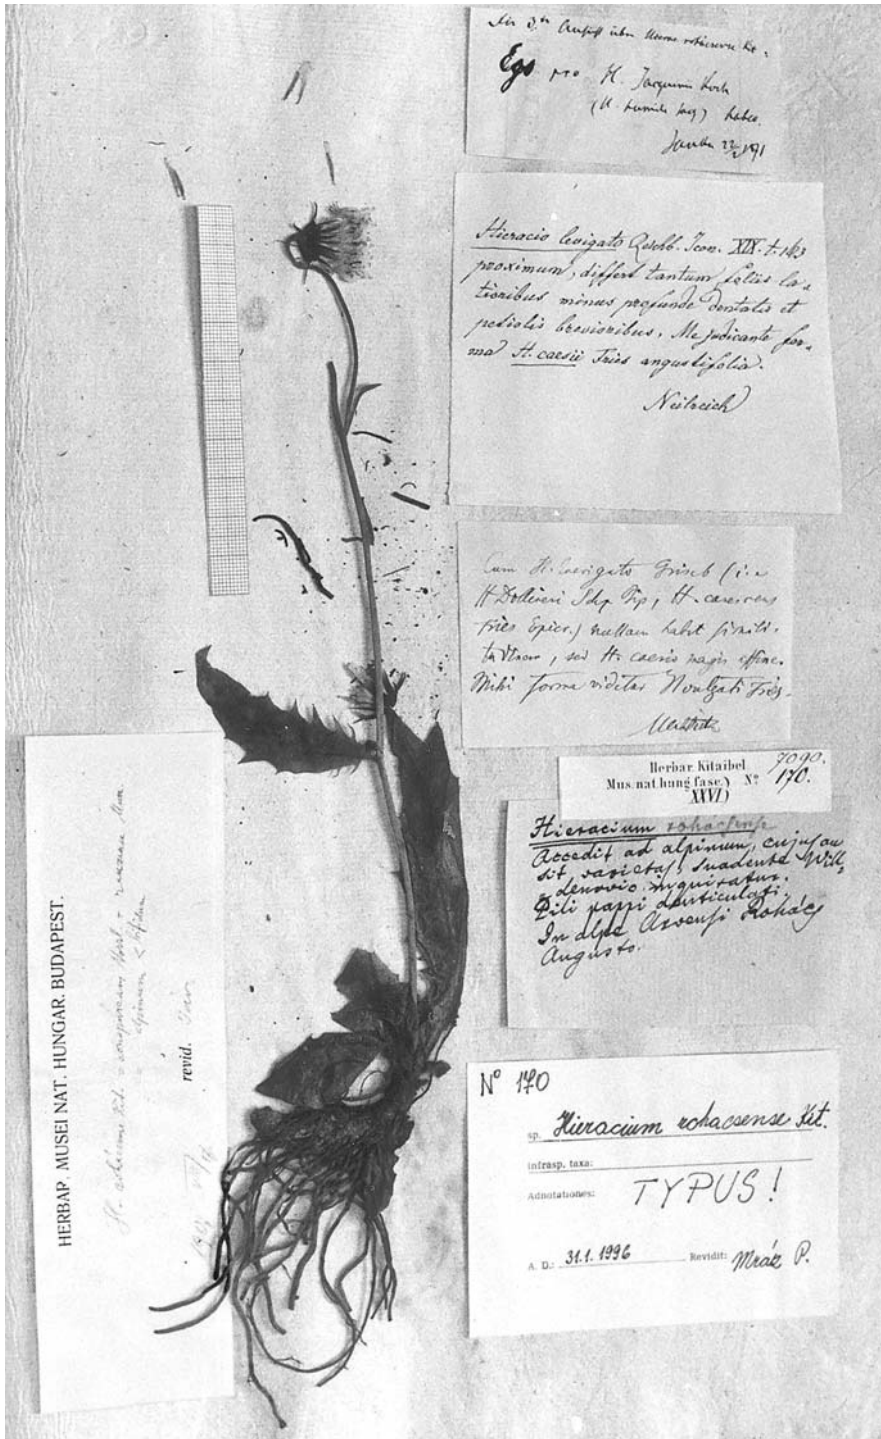 Ego pro H. Jacquini Koch
(H. humile Jacq) habeo.
Janka
Hieracio levigato Rchb. Icon. XIX. t. 163
proximum, differt tantum foliis la-
tioribus minus profunde dentatis et
petiolis brevioribus. Me judicante for-
ma H. caesii Fries angustifolia.
Neilreich
Cum H. laevigato Griseb (i. e
H Dollineri Schp Bip, H. canescens
Fries Epicr.) nullam habet simili-
tudinem, sed H. caesio magis affine.
Mihi forma videtur H vulgati Fries.
Uechtritz
Herbar. Kitaibel
Mus. nat. hung. fasc. XXVI) Nº 7090.
170.
Hieracium rohacsense
Accedit ad alpinum, cujus an
sit varietas, suadente Will-
denovio inquiratur.
Pili pappi denticulati.
In alpe Arvensi Rohács
Augusto.
Nº 170
sp. Hieracium rohacsense Kit.
infrasp. taxa:
Adnotationes: TYPUS!
A. D.: 31.1.1996 Revidit: Mráz P.
HERBAR. MUSEI NAT. HUNGAR. BUDAPEST.
alpinum < bifidum
revid.